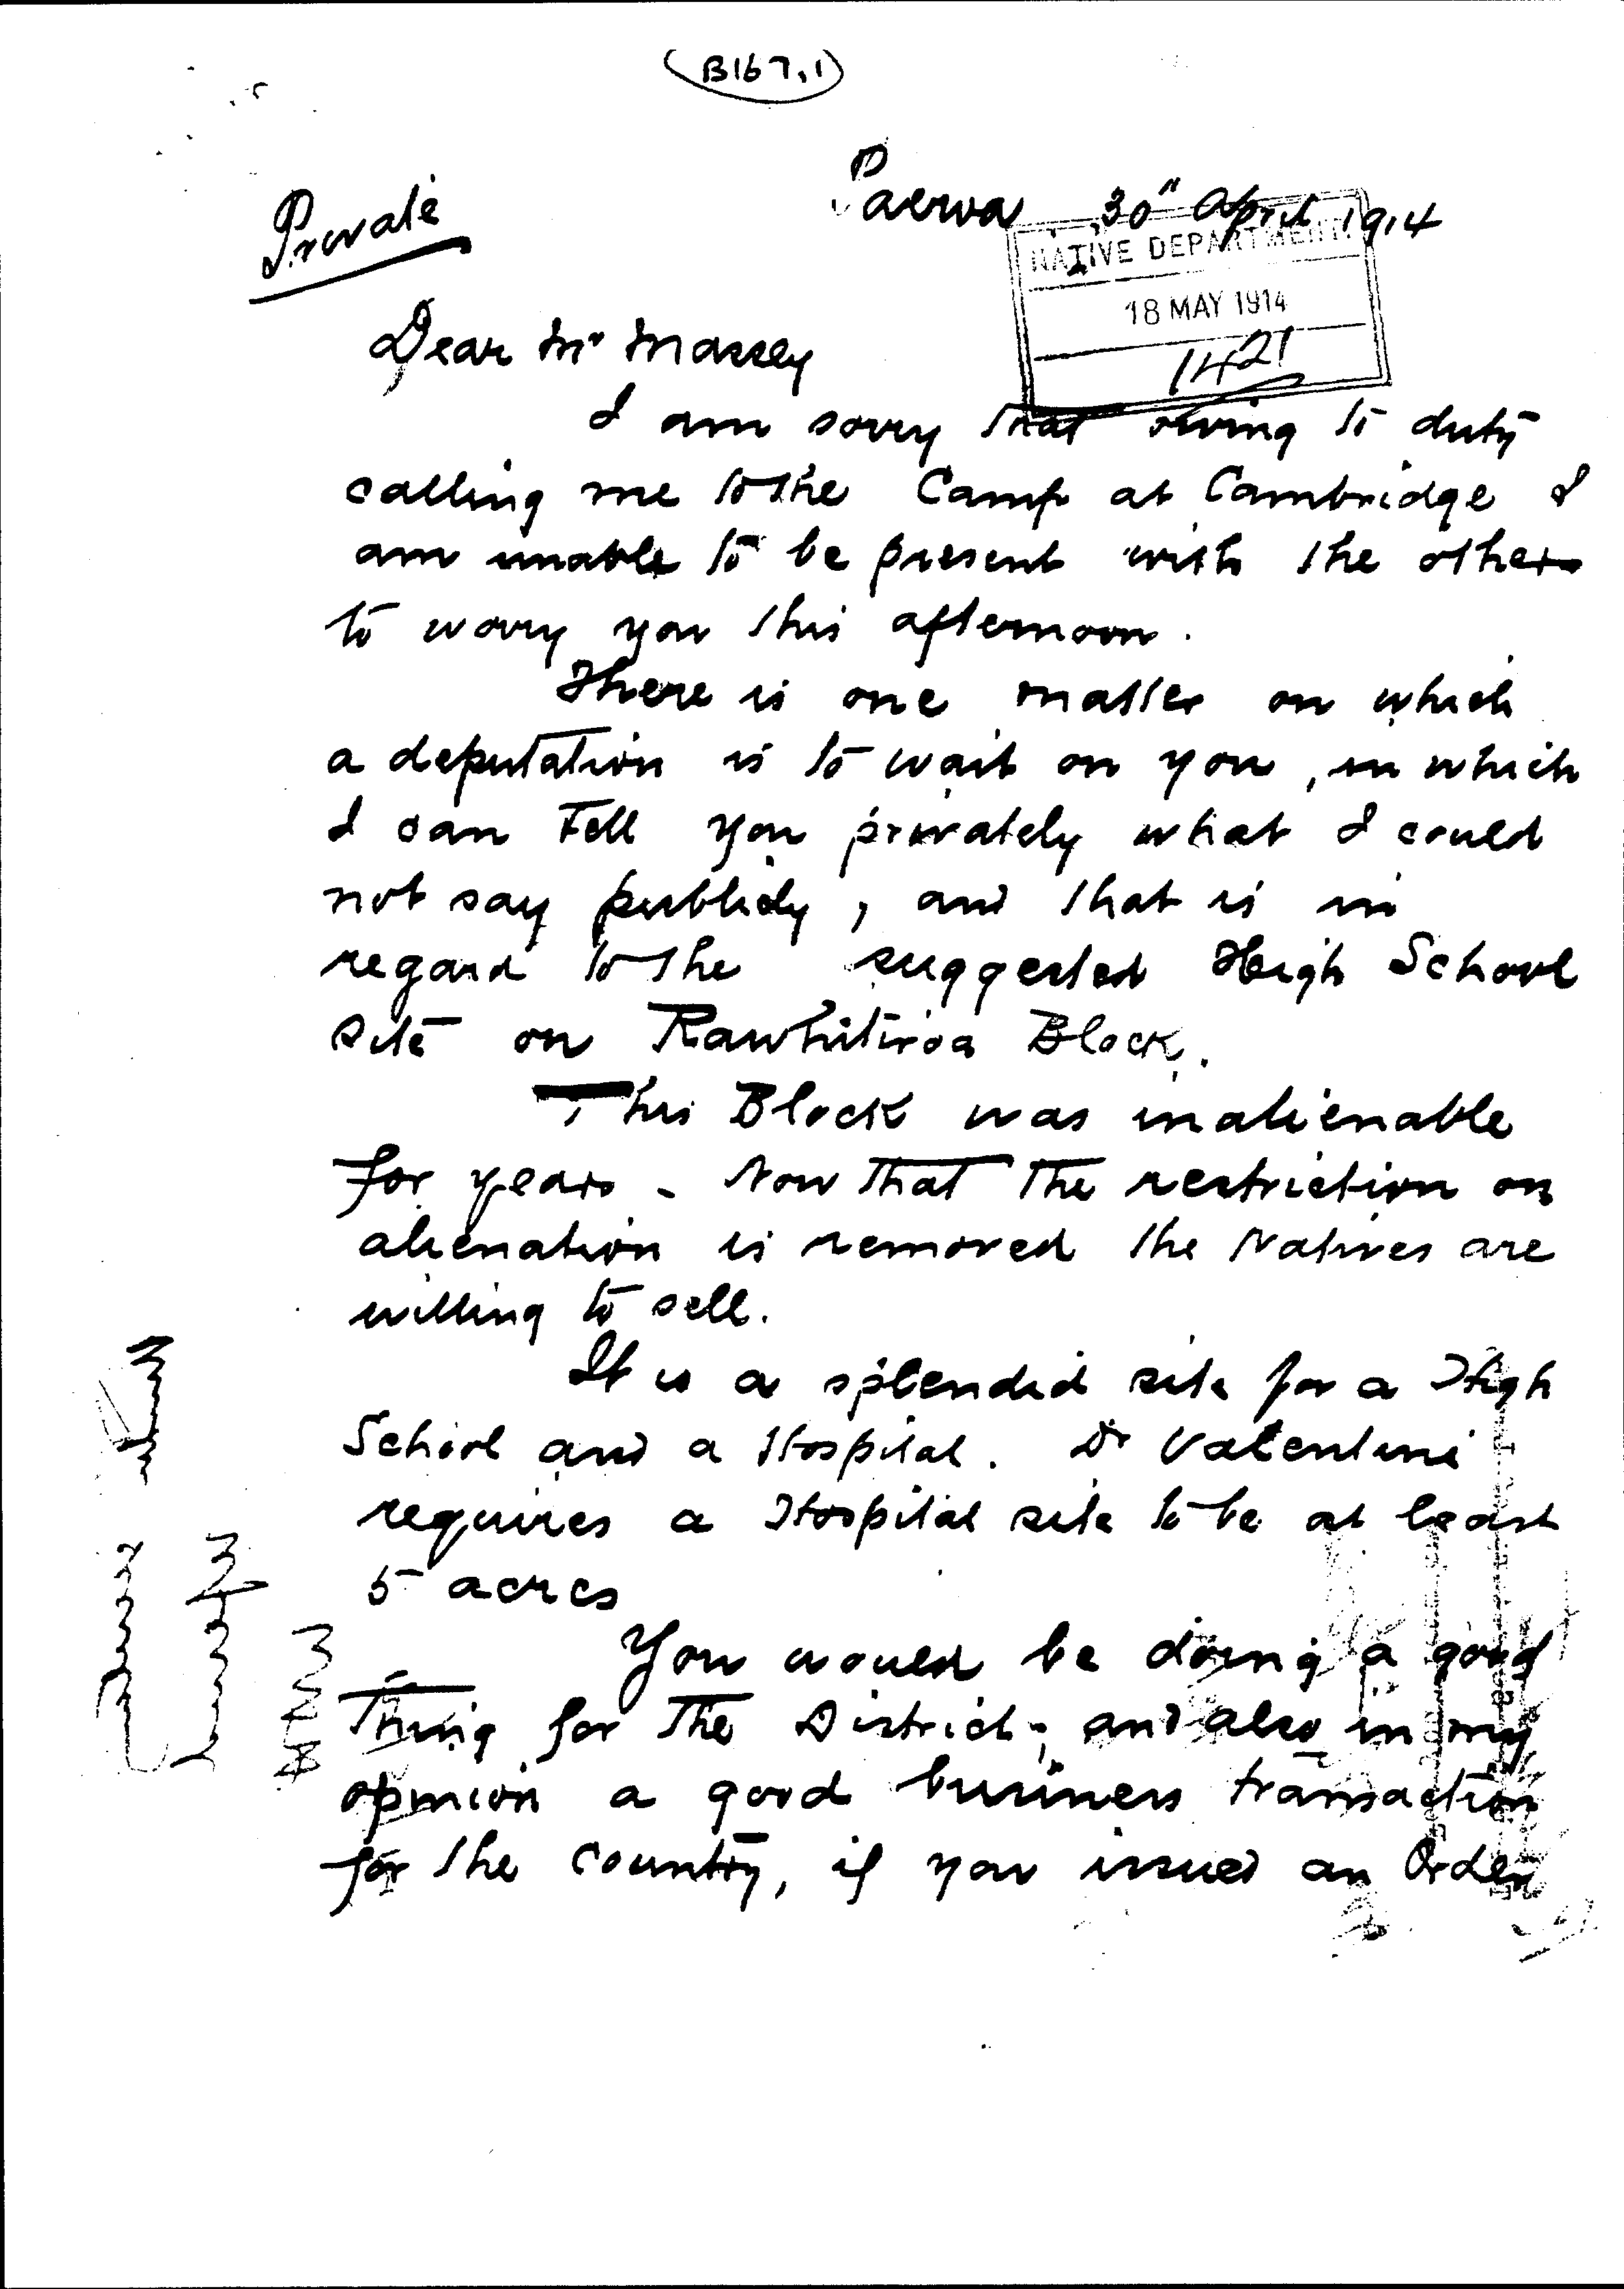 (B167.1)
Private
Paeroa 30" April 1914
NATIVE DEPARTMENT
18 MAY 1914
1421
Dear Mr Massey
I am sorry that owing to duty
calling me to the Camp at Cambridge I
am unable to be present with the others
to worry you this afternoon.
There is one matter on which
a deputation is to wait on you, in which
I can tell you privately what I could
not say publicly, and that is in
regard to the suggested High School
site on Rawhitiroa Block.
This Block was inalienable
for years - Now that the restriction on
alienation is removed the Natives are
willing to sell.
It is a splendid site for a High
School and a Hospital. Dr Valentine
requires a Hospital site to be at least
5 acres
You would be doing a good
thing for the District; and also in my
opinion a good business transaction
for the country, if you issued an Order